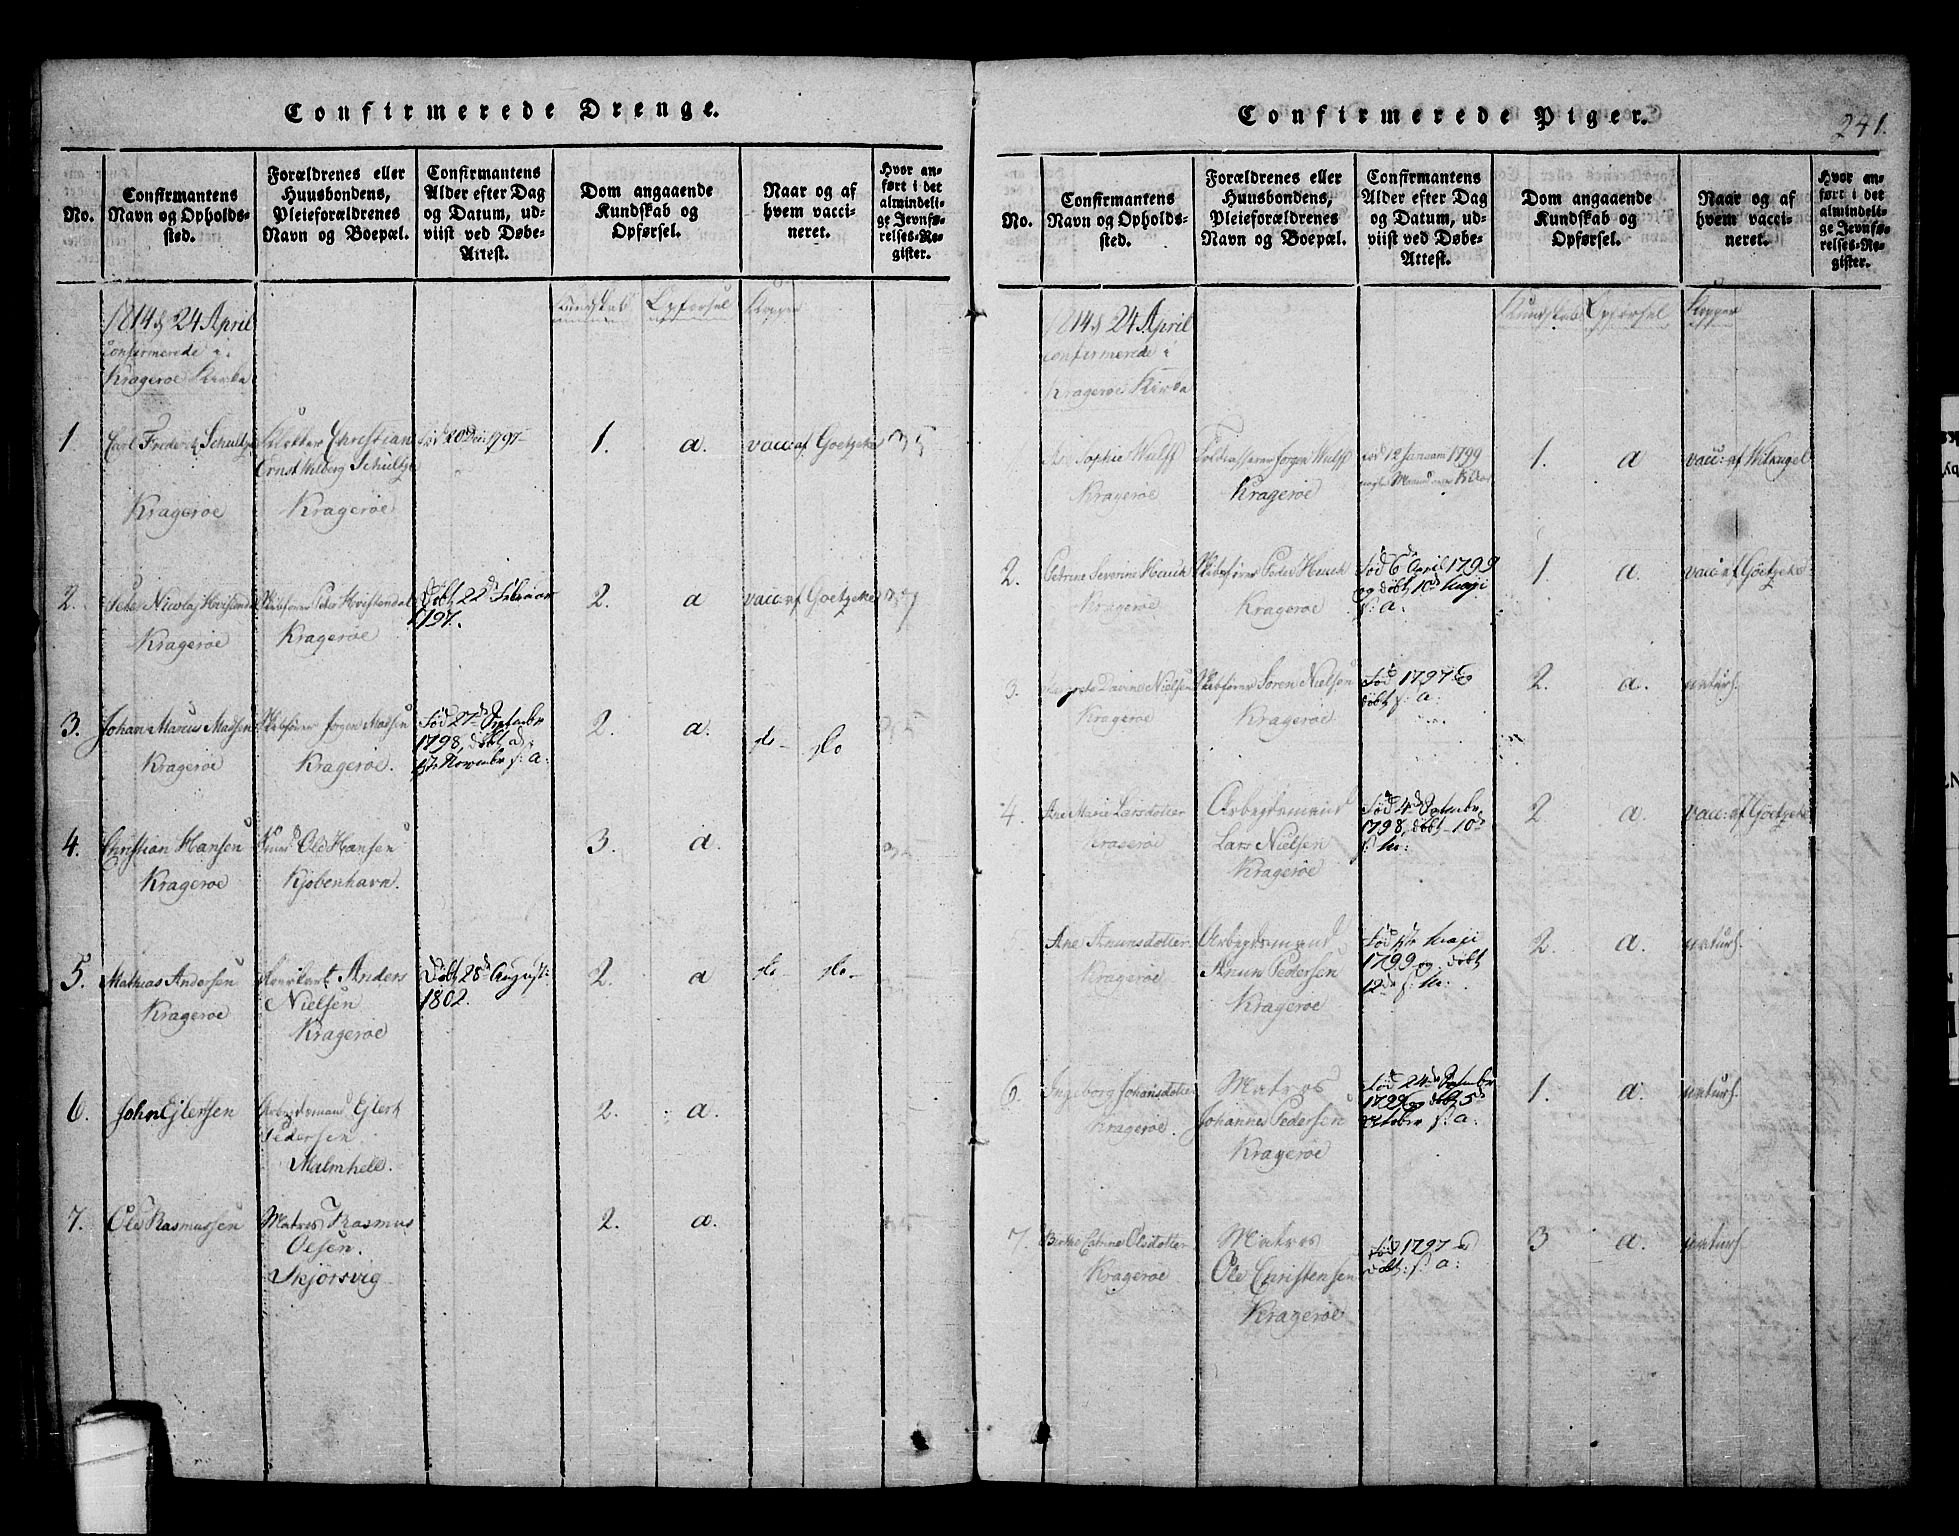 Confirmerede Drenge.
No.
Confirmantens
Navn og Opholds-
sted.
Forældrenes eller
Huusbondens,
Pleieforældrenes
Navn og Boepæl.
Confirmantens
Alder efter Dag
og Datum, ud-
viist ved Døbe-
Attest.
Dom angaaende
Kundskab og
Opførsel.
Naar og af
hvem vacci-
neret.
Hvor an-
ført i det
almindeli-
ge Jevnfø-
relses-Re-
gister.
1814 d. 24 April
confirmerede i
Kragerøe Kirke
Kundskab Opførsel Kopper
1. Carl Frederich Schultze
Christian
Ernst Schultze
Kragerøe Kragerøe
Fød 20 Dec: 1797
1. a. vacc: af Goetzeke
2. Peter Nicolaj Hvistendal
Kragerøe
Skibsfører Peter Hvistendal
Kragerøe
Døbt 22 Februar
1797.
2. a vacc: af Goetzeke
3. Johan Marcus Madsen
Kragerøe
Skibsfører Jørgen Madsen
Kragerøe.
Fød 27de Septmbr
1798, døbt d:
Novembr s: a:
2. a. do - do
4. Christian Hansen
Kragerøe
Ole Hansen
Kjøbenhavn.
3. a.
5. Mathias Andersen
Kragerøe
Anders
Nielsen
Kragerøe
Døbt 28de August:
1802.
2. a do - do -
6. John Ejlertsen
Arbeidsmand Ejlert
Pedersen.
Malmhele.
2. a.
7. Ole Rasmussen
Matros Rasmus
Olsen.
Skjørsvig
2. a.
Confirmerede Piger.
241.
No.
Confirmantens
Navn og Opholds-
sted.
Forældrenes eller
Huusbondens,
Pleieforældrenes
Navn og Boepæl.
Confirmantens
Alder efter Dag
og Datum, ud-
viist ved Døbe-
Attest.
Dom angaaende
Kundskab og
Opførsel.
Naar og af
hvem vacci-
neret.
Hvor an-
ført i det
almindeli-
ge Jevnfø-
relses-Re-
gister.
1814 d. 24 April
confirmerede i
Kragerøe Kirke
Kundskab Opførsel Kopper
Ane Sophie Wulff
Kragerøe
Jørgen Wulff
Kragerøe
Fød 12 Januar 1799
1. a vacc: af
2. Petrine Severine Heuch
Kragerøe
Skibsfører Peder Heuch
Kragerøe
Fød 6de April 1799
og døbt 10de Maji
s: a:
1. a. vacc: af Goetzeke
3. Davine Nielsen
Kragerøe
Skibsfører Søren Nielsen
Kragerøe
Fød 1797 &
døbt s: a:
2. a. naturl.
4. Ane Marie Larsdotter
Kragerøe
Arbeidsmand
Lars Nielsen
Kragerøe
Fød 4de Septmbr
1798, døbt 10de
s: M:
2 a. vacc: af Goetzeke
Ane Anunsdotter
Kragerøe
Arbeidsmand
Anun Pedersen
Kragerøe
Fød 1ste Maji
1799 og døbt
12te s: M:
2. a. naturl.
6. Ingeborg Johansdotter
Kragerøe.
Matros
Johannes Pedersen
Kragerøe
Fød 24de Septmbr
1799 og døbt 5te
October s: a:
1. a. naturl.
7. Birthe Catrine Olsdotter
Kragerøe
Matros
Ole Christensen
Kragerøe
Fød 1797 &
døbt: s: a:
3 a. naturl.